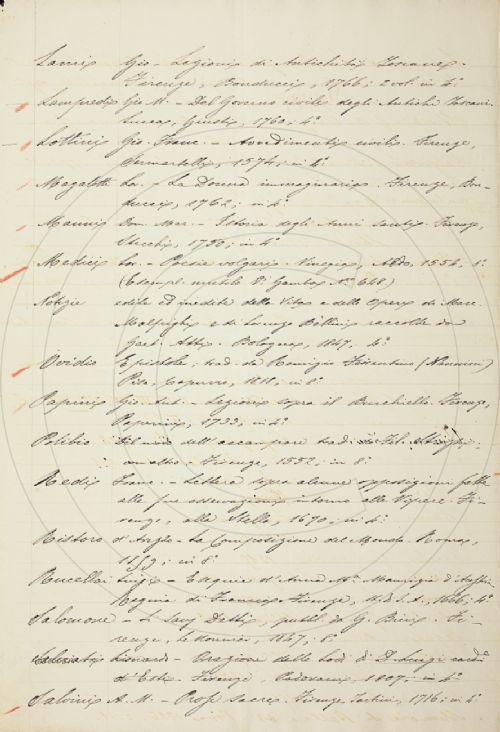 Lami Gio - Lezioni di Antichità Toscane.
Firenze, Bonducci, 1766; 2 vol. in 4°
Lampredi Gio M. - Del Governo civile degli Antichi Toscani
Lucca, Giusti, 1760; 4°
Lottini Gio. Franc. - Avvedimenti civili. Firenze,
Sermartelli, 1574; in 4°
Magalotti Lor. - La Donna immaginaria. Firenze, Bon-
ducci, 1762; in 4°
Manni Dom. Mar. - Istoria degli Anni santi. Firenze,
Stecchi, 1750; in 4°
Medici Lor. - Poesie volgari. Vinegia, Aldo, 1554, 8°
(Esempl. mutilo V. Gamba N° 648)
Notizie edite ed inedite della Vita e delle Opere di Marc.
Malpighi e di Lorenzo Bellini raccolte da
Gaet. Atti. Bologna, 1847, 4°
Ovidio Epistole, trad. da Remigio Fiorentino (Nannini)
Pisa, Capurro, 1818, in 8°
Papini Gio. Ant. - Lezioni sopra il Burchiello. Firenze,
Paperini, 1733, in 4°
Polibio Del modo dell'accampare trad. da Fil. Strozzi
con altro - Firenze, 1552; in 8°
Redi Franc. - Lettera sopra alcune opposizioni fatte
alle sue osservazioni intorno alle Vipere. Fi-
renze, alla Stella, 1670; in 4°
Ristoro d'Arezzo - La Composizione del Mondo. Roma,
1859; in 8°
Rucellai Luigi - Esequie d'Anna M. Maurizia d'Austria
Regina di Francia. Firenze, 1666; 4°
Salomone - Li Savj Detti, pubbl. da G. Bini. Fi-
renze, 1847; 8°
Salviati Lionardo - Orazione delle lodi di D. Luigi card.
d'Este. Firenze, Padovani, 1587; in 4°
Salvini A. M. - Prose sacre. Firenze, Tartini, 1716; in 4°